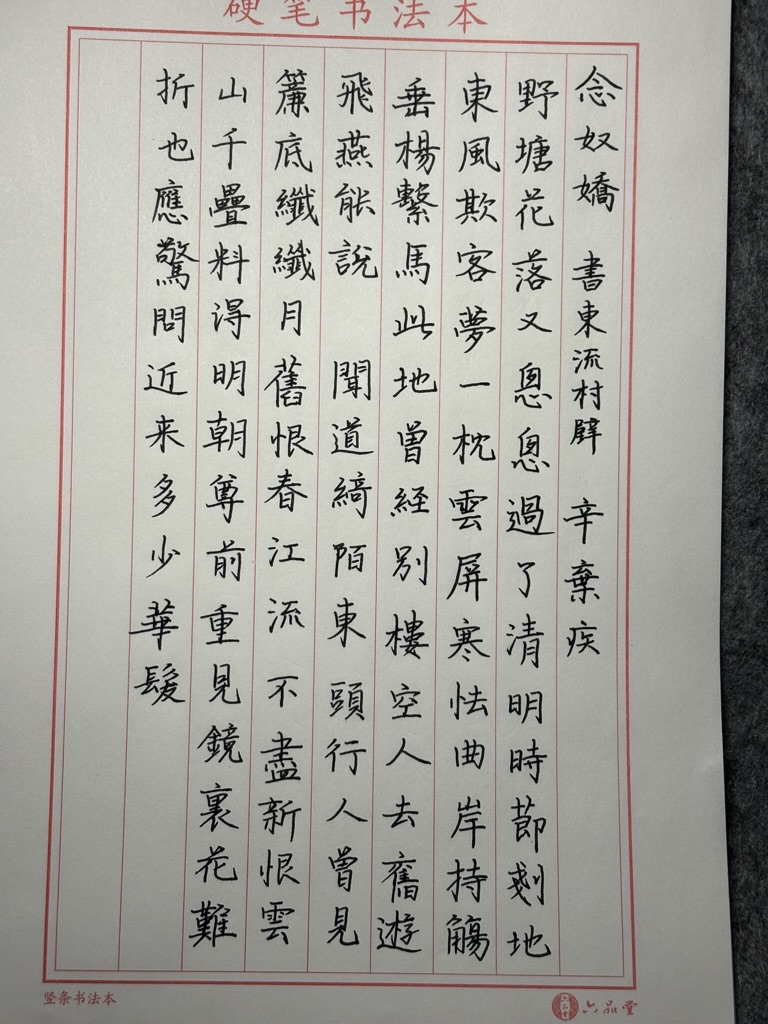 硬笔书法本
念奴嬌 書東流村壁 辛棄疾
野塘花落又悤悤過了清明時節剗地
東風欺客夢一枕雲屏寒怯曲岸持觴
垂楊繫馬此地曾經別樓空人去舊遊
飛燕能說 聞道綺陌東頭行人曾見
簾底纖纖月舊恨春江流不盡新恨雲
山千疊料得明朝尊前重見鏡裏花難
折也應驚問近来多少華髮
竖条书法本
六品堂